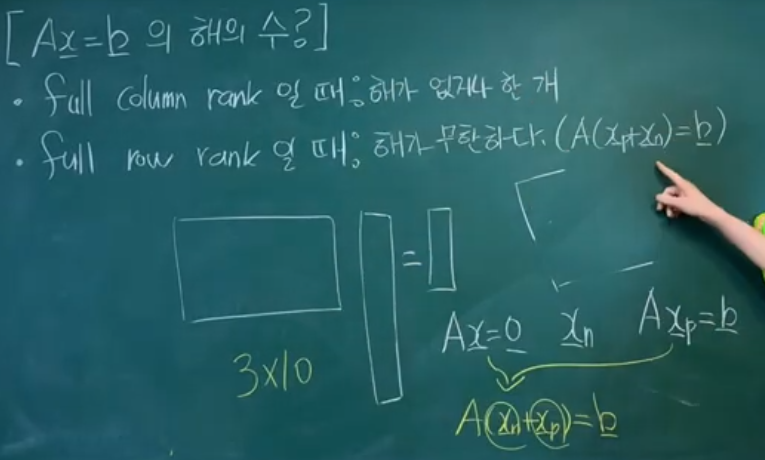 [Ax=b 의 해의 수?]
• full column rank 일 때: 해가 없거나 한 개
• full row rank 일 때: 해가 무한하다. (A(xp+xn)=b)
=
3x10
Ax=0 xn Axp=b
A(xn+xp)=b